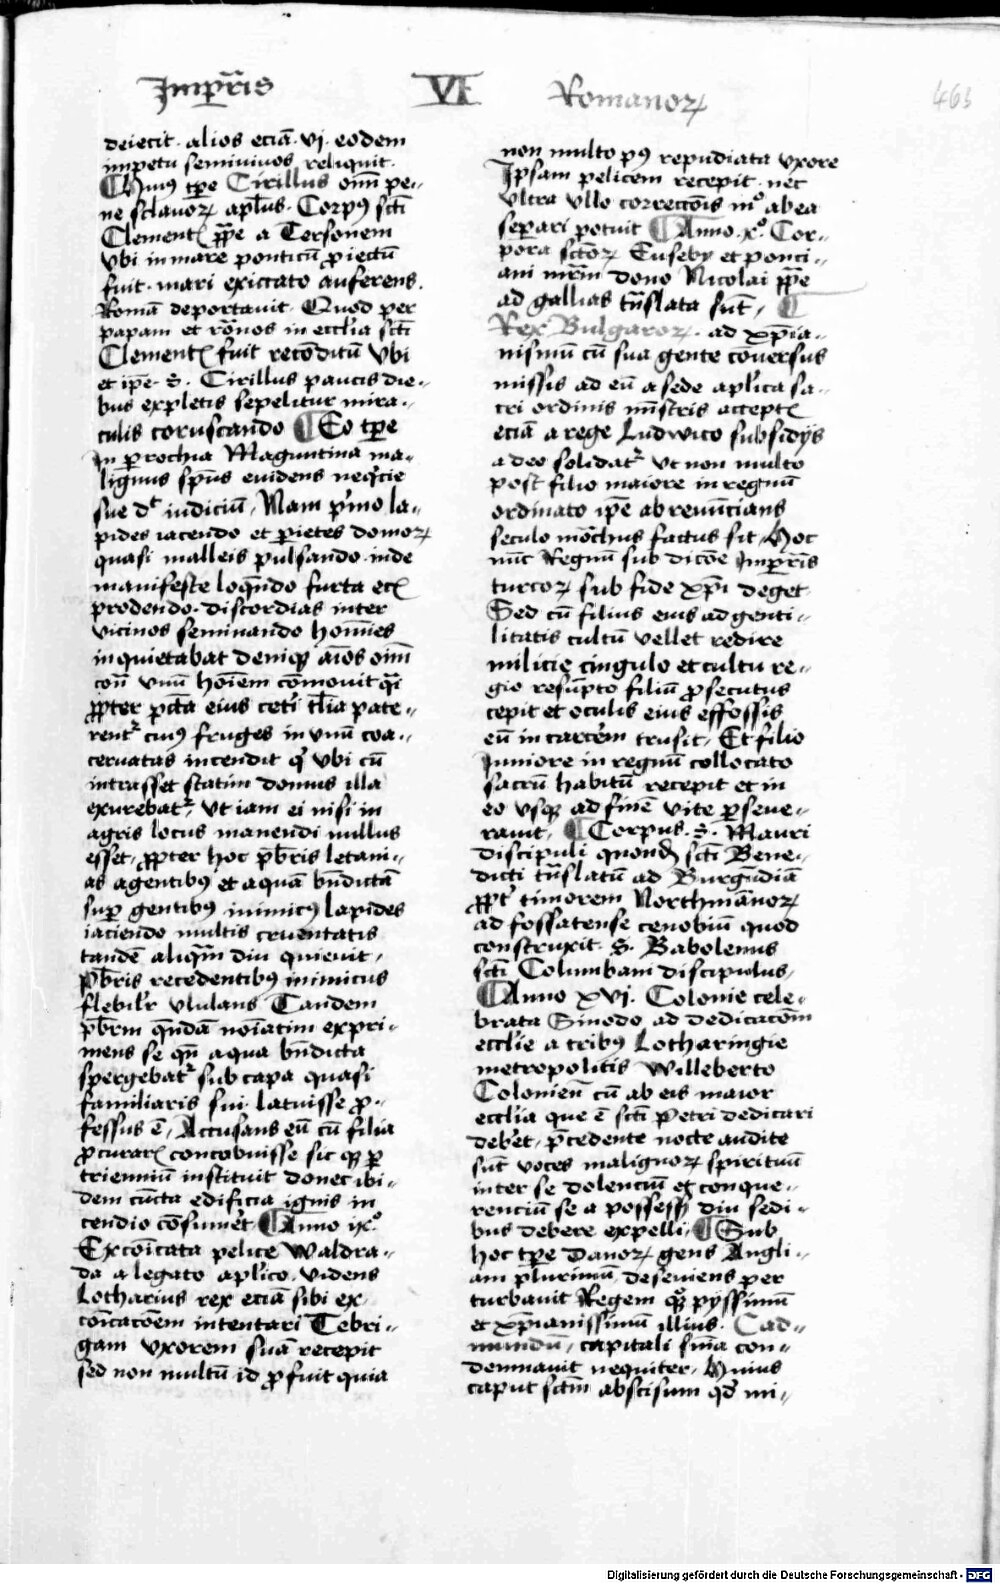 Imꝑr̄is VI Romanoꝝ 463
deiecit · alios eciā · vj · eodem
impetu seminiuos reliquit ·
¶ Huiꝰ tꝑe Cirillus oīm pe-
ne sclauoꝝ apl̄us · Corpꝰ scti
Clementꝭ pp̄e a Cersonem
vbi in mare ponticū ꝓiectū
fuit · mari exiccato auferens ·
Romā deportauit · Quod per
papam et rōnos in eccl̄ia scti
Clementꝭ fuit recōditū vbi
et ip̄e · S · Cirillus paucis die-
bus expletis sepelitur mira-
culis coruscando ¶ Eo tꝑe
In ꝑrochia Maguntina ma-
lignus sp̄us euidens neqͥcie
sue dt iudiciū / Nam pͥmo la-
pides iacendo et ꝑietes domoꝝ
quasi malleis pulsando · inde
manifeste loqn̄do furta etꝭ
prodendo · discordias inter
vicinos seminando homīes
inquietabat deniqꝫ aīos oīm
con̄ vnū hoīem cōmouit qͣi
ꝓpter pctā eius ceti tl̄ia pate-
rentʳ cuiꝰ fruges in vnū coa-
ceruatas incendit qͥ vbi cū
intrasset statim domus illa
exurebatʳ / vt iam ei nisi in
agris locus manendi nullus
esset / ꝓpter hoc p̄bris letani-
as agentibꝰ et aquā bn̄dictā
suꝑ gentibꝰ inimicꝰ lapides
iaciendo multis cruentatis
tandē aliqm̄ diu quieuit /
p̄bris recedentibꝰ inimicus
flebilr̄ vlulans Tandem
p̄brm qn̄dā noīatim expri-
mens se qn̄ aqua bn̄dicta
spergebatʳ sub capa quasi
familiaris sui latuisse ꝓ-
fessus ē / Accusans eū cū filia
ꝓcuratꝭ concobuisse sic qꝫ ꝑ
trienniū instituit donec ibi-
dem cūcta edificia ignis in
cendio cōsumr̄et ¶ Anno ix°
Excōicata pelice Waldra-
da a legato aplico · videns
Lotharius rex eciā sibi ex
cōicacōem intentari Tebri-
gam vxorem suā recepit
sed non multū id ꝓfuit quia
non multo pꝰ repudiata vxore
Ipsam pelicem recepit · nec
vltra vllo correctōis mº ab ea
seꝑari potuit ¶ Anno · x° · Cor-
pora sctoꝝ Euseby et ponci-
ani mr̄m dono Nicolai pp̄e
ad gallias tn̄slata sūt / ¶
Rex Bulgaroꝝ · ad xp̄ia-
nismū cū sua gente cōuersus
missis ad eū a sede aplica sa-
cri ordinis mīstris acceptꝭ
eciā a rege Ludwico subsidijs
adeo solidatʳ vt non multo
post filio maiore in regnū
ordinato ip̄e abrenūcians
seculo mōchus factus sit / Hoc
nūc Regnū sub dicōe Imꝑr̄is
turcoꝝ sub fide xp̄i deget
Sed cū filius eius ad genti-
litatis cultū vellet redire
milicie cingulo et cultu re-
gio resūpto filiū ꝓsecutus
cepit et oculis eius effossis
eū in carcerem trusit / Et filio
Iuniore in regnū collocato
sacrū habitū recepit et in
eo vsqꝫ ad finē vite ꝑseue-
rauit / ¶ Corpus · S · Mauri
discipuli quondā scti Bene-
dicti tn̄slatū ad Burgūdiā
ꝓptʳ timorem Northmānoꝝ
ad fossatense cenobiū quod
construxit · S · Babolenus
scti Columbani discipulus /
¶ Anno xvj · Colonie cele-
brata Sinodo ad dedicacōm
eccl̄ie a tribꝰ Lotharingie
metropolitis Willeberto
Colonien̄ cū ab eis maior
eccl̄ia que ē scti Petri dedicari
debet / p̄cedente nocte audite
sūt voces malignoꝝ spirituū
inter se dolenciū et conque-
renciū se a possessꝭ diu sedi-
bus debere expelli / ¶ Sub
hoc tꝑe Danoꝝ gens Angli-
am plurimū deseuiens per
turbauit Regem qꝫ pyssimū
et xp̄ianissimū illius · Ead-
mundū / capitali sn̄ia con-
demnauit nequiter / Huius
caput sctm̄ abscisum qd̄ mi-
Digitalisierung gefördert durch die Deutsche Forschungsgemeinschaft - DFG